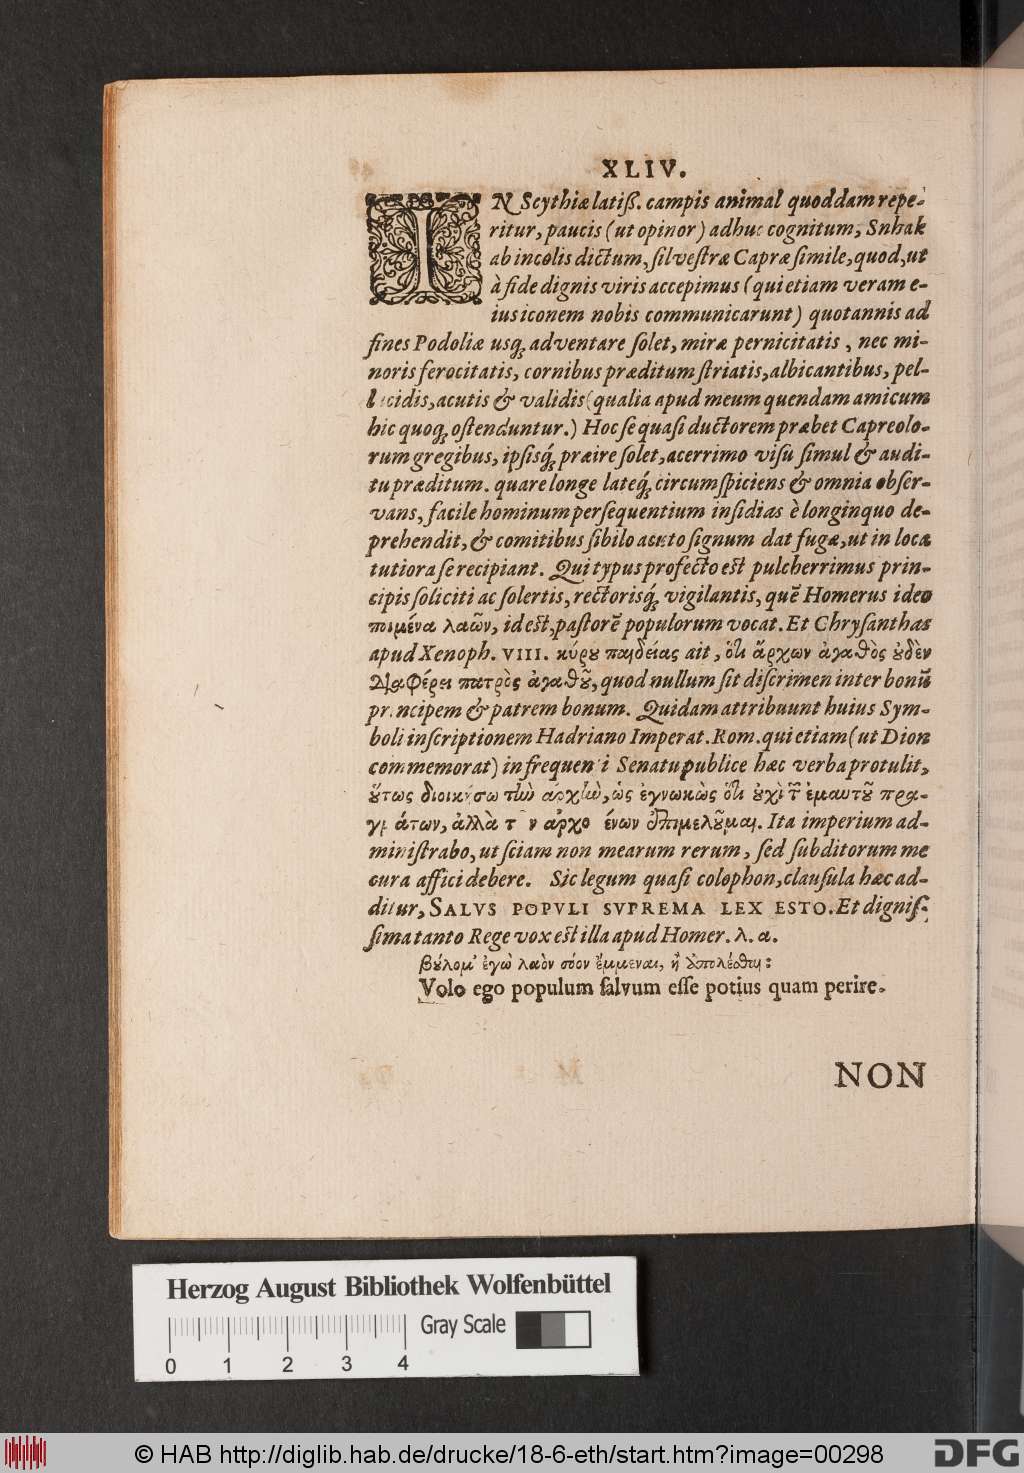 XLIV.
IN Scythiæ latiß. campis animal quoddam repe-
ritur, paucis (ut opinor) adhuc cognitum, Snhak
ab incolis dictum, silvestræ Capræ simile, quod, ut
à fide dignis viris accepimus (qui etiam veram e-
ius iconem nobis communicarunt) quotannis ad
fines Podoliæ usq; adventare solet, miræ pernicitatis, nec mi-
noris ferocitatis, cornibus præditum striatis, albicantibus, pel-
lucidis, acutis & validis (qualia apud meum quendam amicum
hic quoq; ostenduntur.) Hoc se quasi ductorem præbet Capreolo-
rum gregibus, ipsisq́; præire solet, acerrimo visu simul & audi-
tu præditum. quare longe lateq́; circumspiciens & omnia obser-
vans, facile hominum persequentium insidias è longinquo de-
prehendit, & comitibus sibilo acuto signum dat fugæ, ut in loca
tutiora se recipiant. Qui typus profecto est pulcherrimus prin-
cipis soliciti ac solertis, rectorisq́; vigilantis, quẽ Homerus ideo
ποιμένα λαῶν, id est, pastorẽ populorum vocat. Et Chrysanthas
apud Xenoph. VIII. κύρου παιδείας ait, ὅτι ἄρχων ἀγαθὸς οὐδὲν
διαφέρει πατρὸς ἀγαθοῦ, quod nullum sit discrimen inter bonũ
principem & patrem bonum. Quidam attribuunt huius Sym-
boli inscriptionem Hadriano Imperat. Rom. qui etiam (ut Dion
commemorat) in frequenti Senatu publice hæc verba protulit,
οὕτως διοικήσω τὴν ἀρχὴν, ὡς ἐγνωκὼς ὅτι οὐχὶ τ̃ ἐμαυτοῦ πρα-
γμάτων, ἀλλὰ τῶν ἀρχομένων ἐπιμελοῦμαι. Ita imperium ad-
ministrabo, ut sciam non mearum rerum, sed subditorum me
cura affici debere. Sic legum quasi colophon, clausula hæc ad-
ditur, SALVS POPVLI SVPREMA LEX ESTO. Et digniss-
sima tanto Rege vox est illa apud Homer. λ. α.
βούλομ' ἐγὼ λαὸν σόον ἔμμεναι, ἢ ἀπολέσθαι:
Volo ego populum salvum esse potius quam perire.
NON
Herzog August Bibliothek Wolfenbüttel
Gray Scale
0 1 2 3 4
© HAB http://diglib.hab.de/drucke/18-6-eth/start.htm?image=00298
DFG